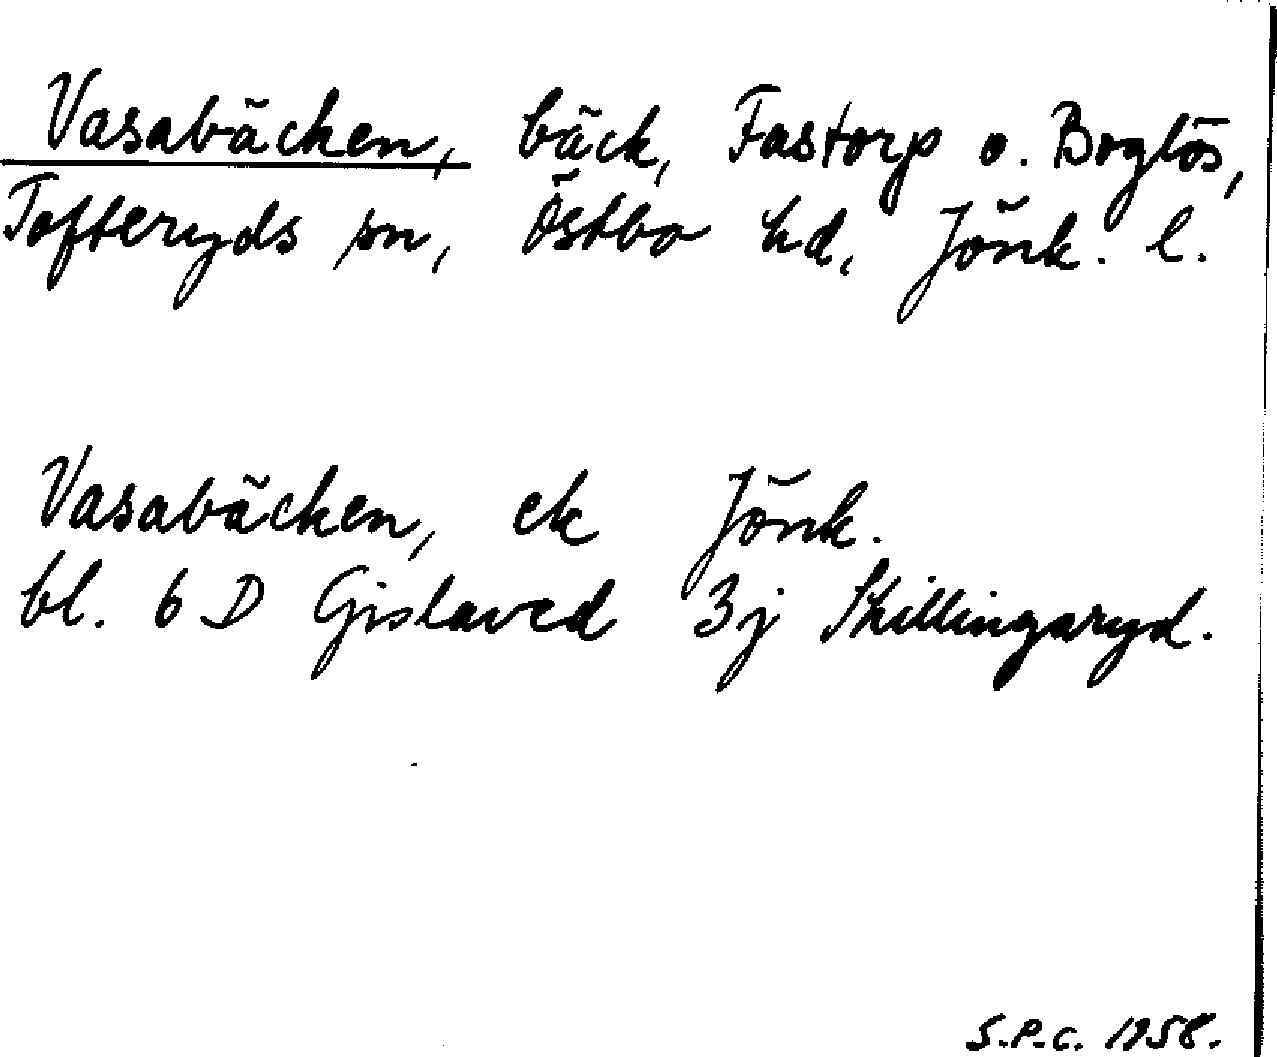 Vasabäcken, bäck, Fastorp o. Boglös,
Tofteryds sn, Östbo hd, Jönk. l.
Vasabäcken, ek Jönk.
bl. 6 D Gislaved 3j Skillingaryd.
S.P.C. 1958.